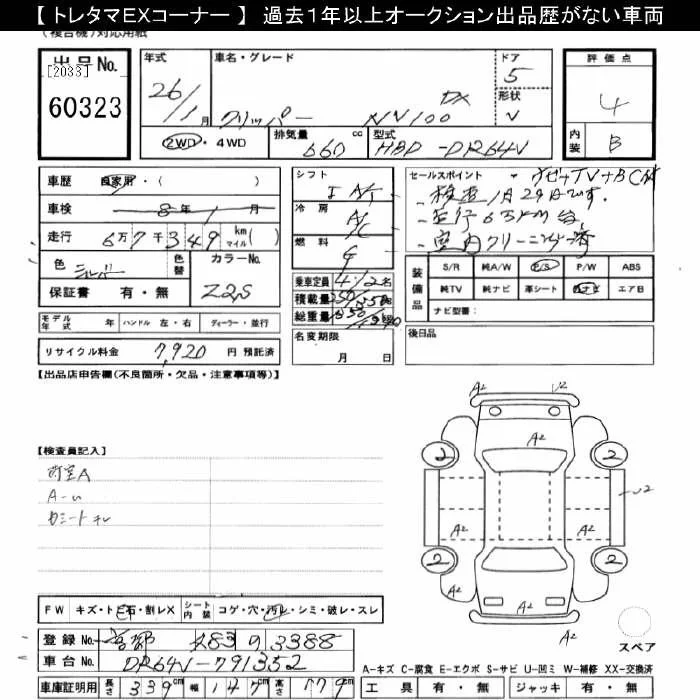 【トレタマEXコーナー】過去1年以上オークション出品歴がない車両
(複合機)対応用紙
出品No.
[2033]
60323
年式
26/1月
車名・グレード
クリッパー NV100 DX
ドア
5
形状
V
評価点
4
内装
B
2WD・4WD
排気量 660 cc
型式 HBD-DR64V
車歴 自家用・( )
車検 8年 1月
走行 6万7千349 km マイル ( )
色 シルバー
色替
カラーNo.
Z2S
保証書 有・無
シフト
I A/T
冷房
A/C
燃料
G
乗車定員 4/2名
積載量 250/350
総重量
名変期限
月 日
セールスポイント ナビ+TV+BC付
・検査1月29日です.
・走行6万km台
・室内クリーニング済
装備品
S/R 純A/W P/S P/W ABS
純TV 純ナビ 革シート エアB
ナビ型番:
後日品
モデル年式 年 ハンドル 左・右 ディーラー・並行
リサイクル料金 7,920 円 預託済
【出品店申告欄(不良箇所・欠品・注意事項等)】
【検査員記入】
荷室A
シートコレ
A2 A2 A2 A2 A2 A2
2 2 2 2
FW キズ・ト石・割レX シート内装 コゲ・穴・汚レ・シミ・破レ・スレ
登録No. 483 の 3388
車台No. DR64V-791352
車庫証明用 長さ 339cm 幅 147cm 高さ 179cm
スペア
A-キズ C-腐食 E-エクボ S-サビ U-凹ミ W-補修 XX-交換済
工具 有・無 ジャッキ 有・無